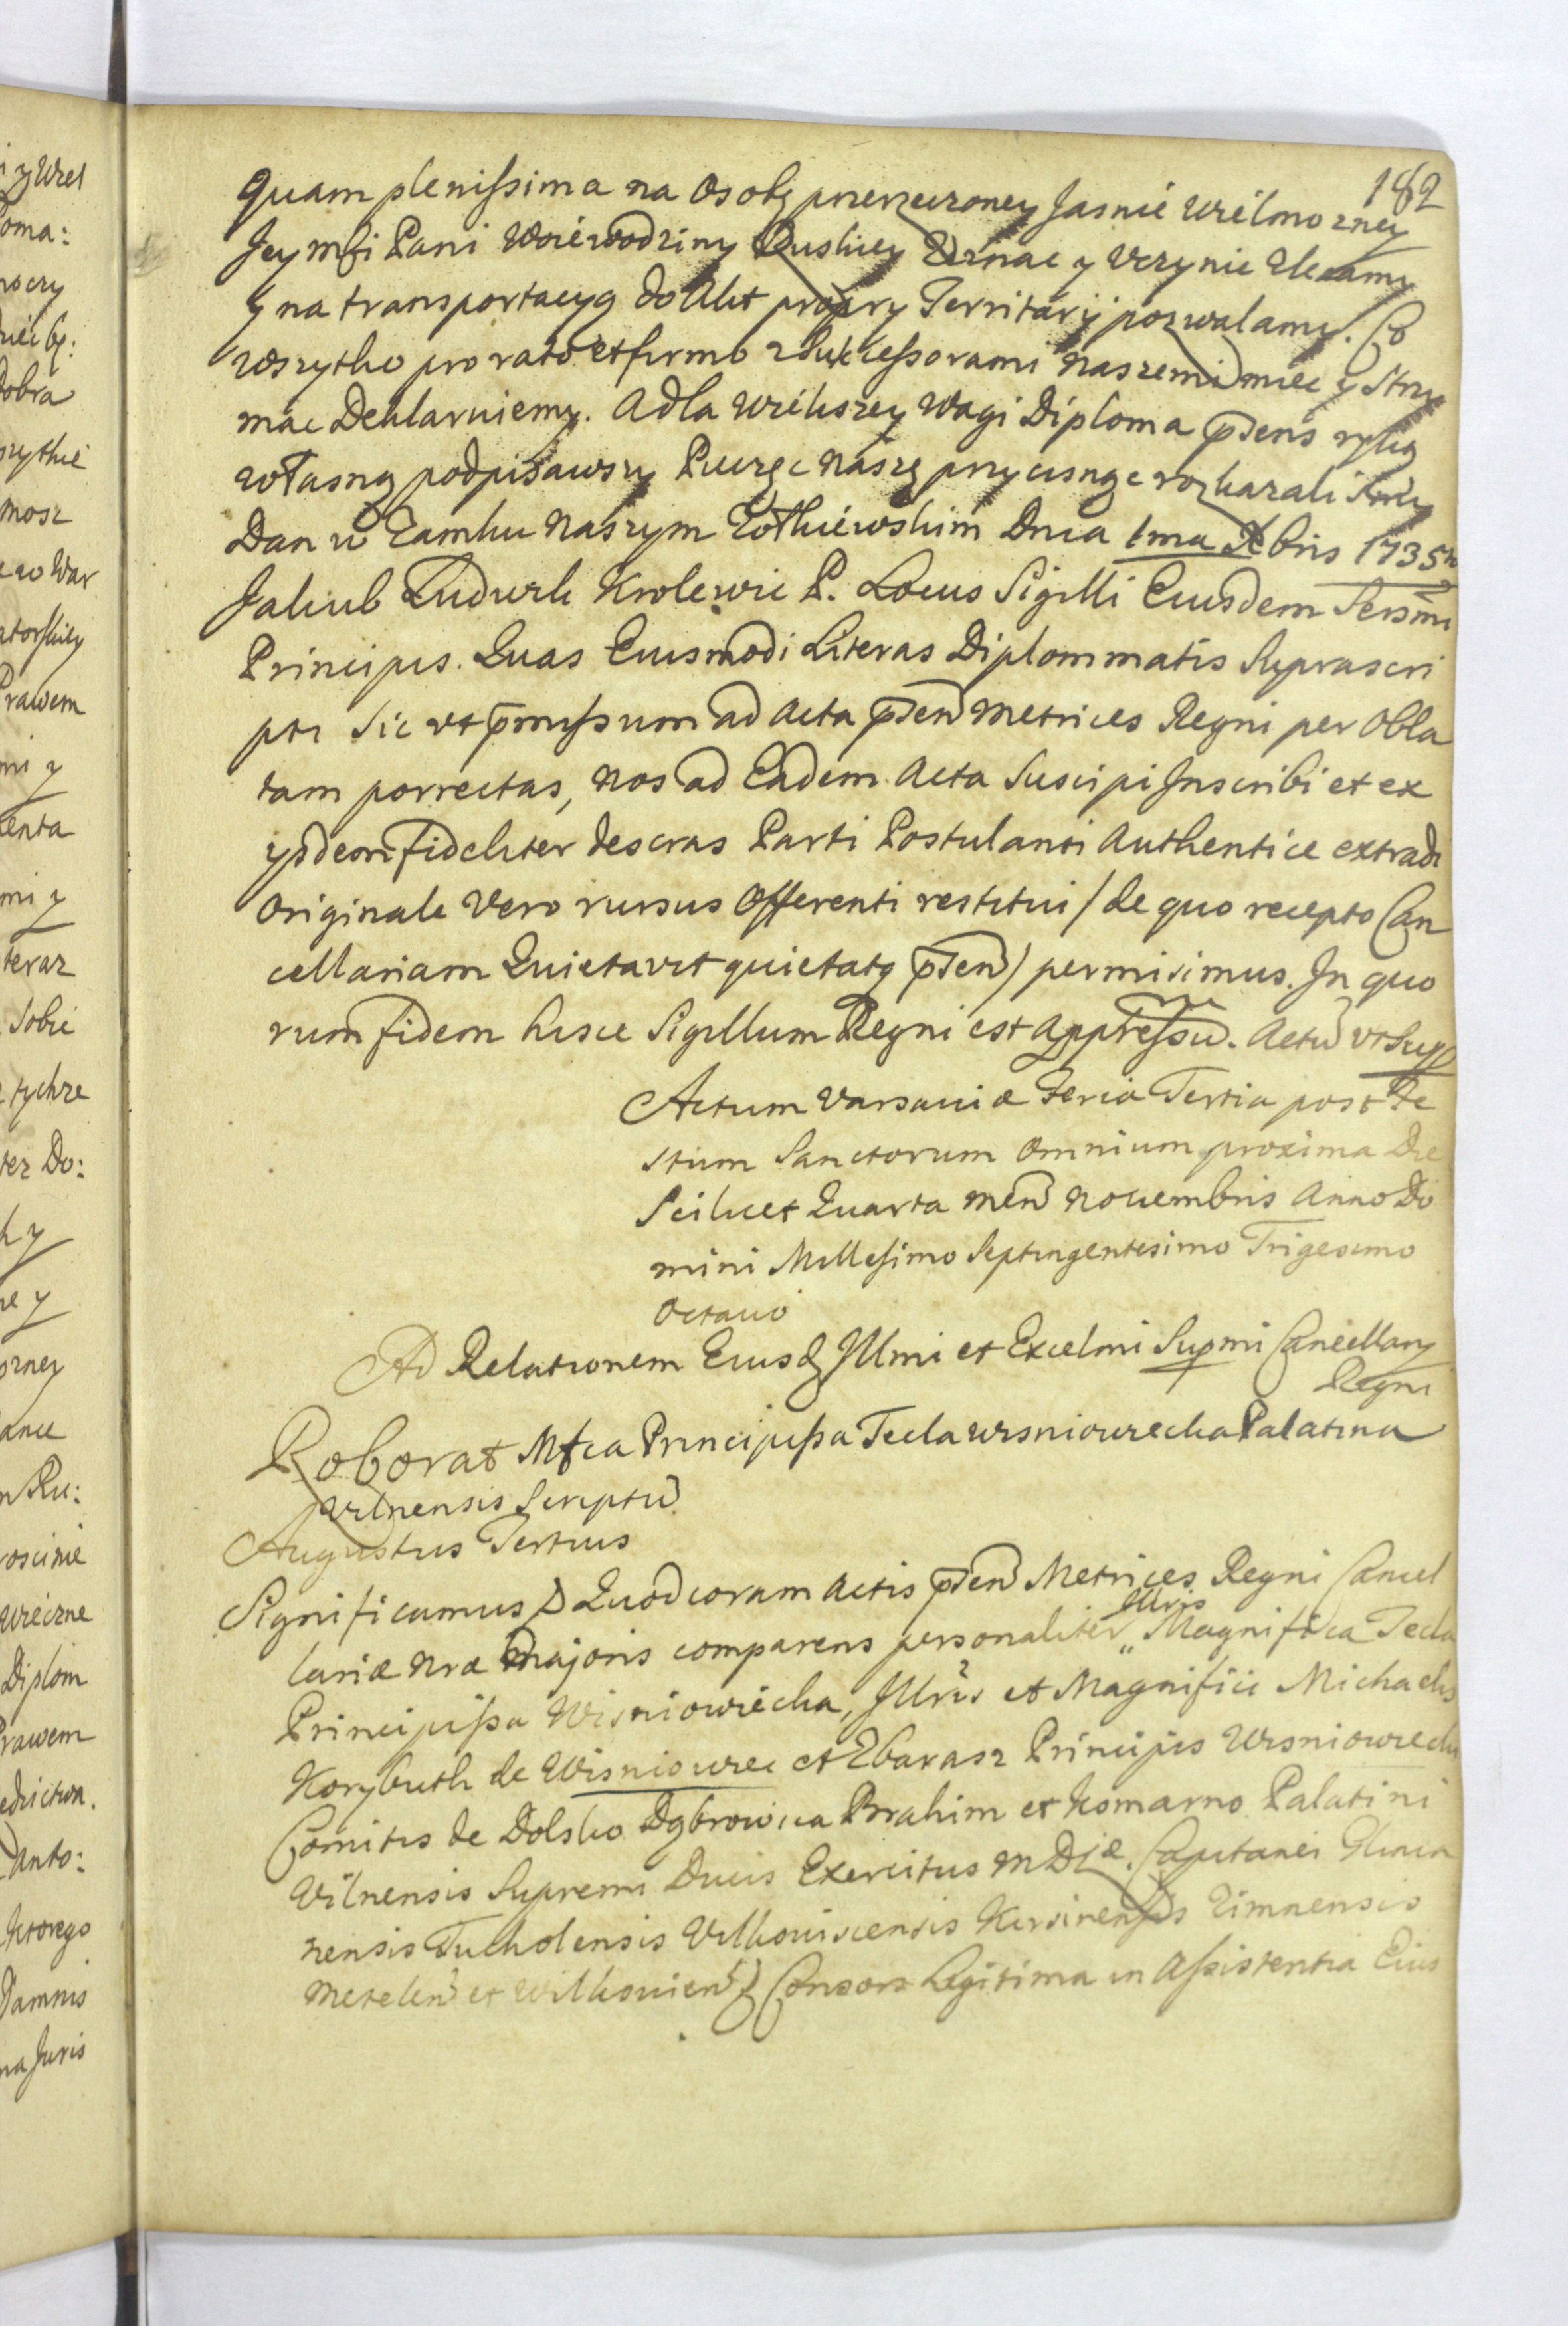 182
quam plenissima na Osobę przerzeczoney Jasnie Wielmozney
Jey Mści Pani Woiewodziny Ruskiey Zeznac y Uczynic Zlecamy
y na transportacyą do Akt propry Territorij pozwalamy. Co
wszytko pro rato et firmo z Sukcessorami Naszemi miec y Strzy
mac Deklaruiemy. A dla Wiekszey Wagi Diploma pntens ręką
własną podpisawszy Pieczęc Naszę przycisnąc rozkazalismy
Dan w Zamku Naszym Żołkiewskim Dnia 1ma Xbris 1735
Jakub Ludwik Krolewic P. Locus Sigilli Eiusdem Sersmi
Principis. Quas Eiusmodi Literas Diplommatis Suprascri
pti Sic ut pmissum ad Acta pnten Metrices Regni per Obla
tam porrectas, Nos ad Eadem Acta Suscipi Inscribi et ex
ysdem fideliter descras Parti Postulanti Authentice extradi
Originale Vero rursus Offerenti restitui / de quo recepto Can
cellariam Quietavit quietatq pnten / permisimus. In quo
rum fidem hisce Sigillum Regni est appressu. Actu ut Sup
Actum Varsaviæ Feria Tertia post Fe
stum Sanctorum Omnium proxima Die
Scilicet Quarta men Novembris Anno Do
mini Millesimo Septingentesimo Trigesimo
Octavo
Ad Relationem Eiusd Illmi et Excelmi Supmi Cancellarij
Regni
Roborat Mfca Principissa Tecla Wisniowiecka Palatina
Vilnensis Scriptu
Augustus Tertius
Significamus Quod coram Actis pnten Metrices Regni Cancel
lariæ Nræ Majoris comparens personaliter Illris Magnifica Tecla
Principissa Wisniowiecka, Illris et Magnifici Michaelis
Korybuth de Wisniowiec et Zbarasz Principis Wisniowiecki
Comitis de Dolsko Dąbrowica Brahim et Komarno Palatini
Vilnensis Supremi Ducis Exercitus M D L. Capitanei Glinia
nensis Tucholensis Vilkoviscensis Kirsinensis Zimnensis
Metelen et Wilkovien Consors Legitima in Assistentia Eius